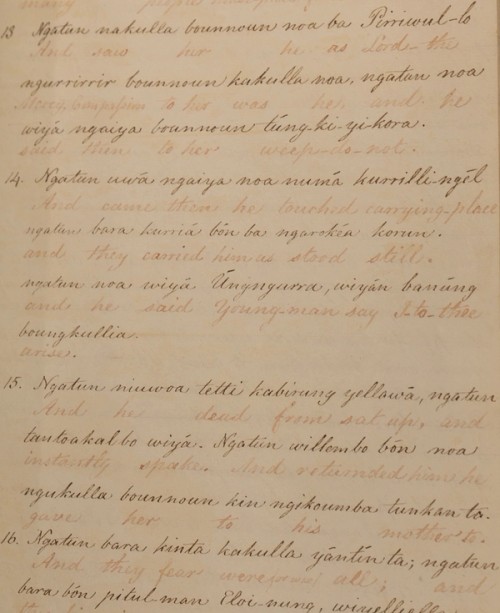 many people
13 Ngatun nakulla bounnoun noa ba Pirriwul-lo
And saw her he as Lord-the
ngurrirrir bounnoun kakulla noa, ngatun noa
Mercy, compassion to her was he, and he
wiyá ngaiya bounnoun túng-ki-yi-kora.
said then to her weep-do-not.
14. Ngatun uwá ngaiya noa numá kurrilli-ngél
And came then he touched carrying-place
ngatun bara kurriá bón ba ngarokéa korun.
and they carried him as stood still.
ngatun noa wiyá Úngngurra, wiyán banúng
and he said Young-man say I-to-thee
boungkullia.
arise.
15. Ngatun niuwoa tetti kabirung yellawá, ngatun
And he dead from sat up, and
tantoakal bo wiyá. Ngatún willombo bón noa
instantly spake. And returnded him he
ngukulla bounnoun kin ngikoumba tunkan ta.
gave her to his mother to.
16. Ngatun bara kinta kakulla yántín ta; ngatun
And they fear were all; and
bara bón pitul-man Eloi-nung,